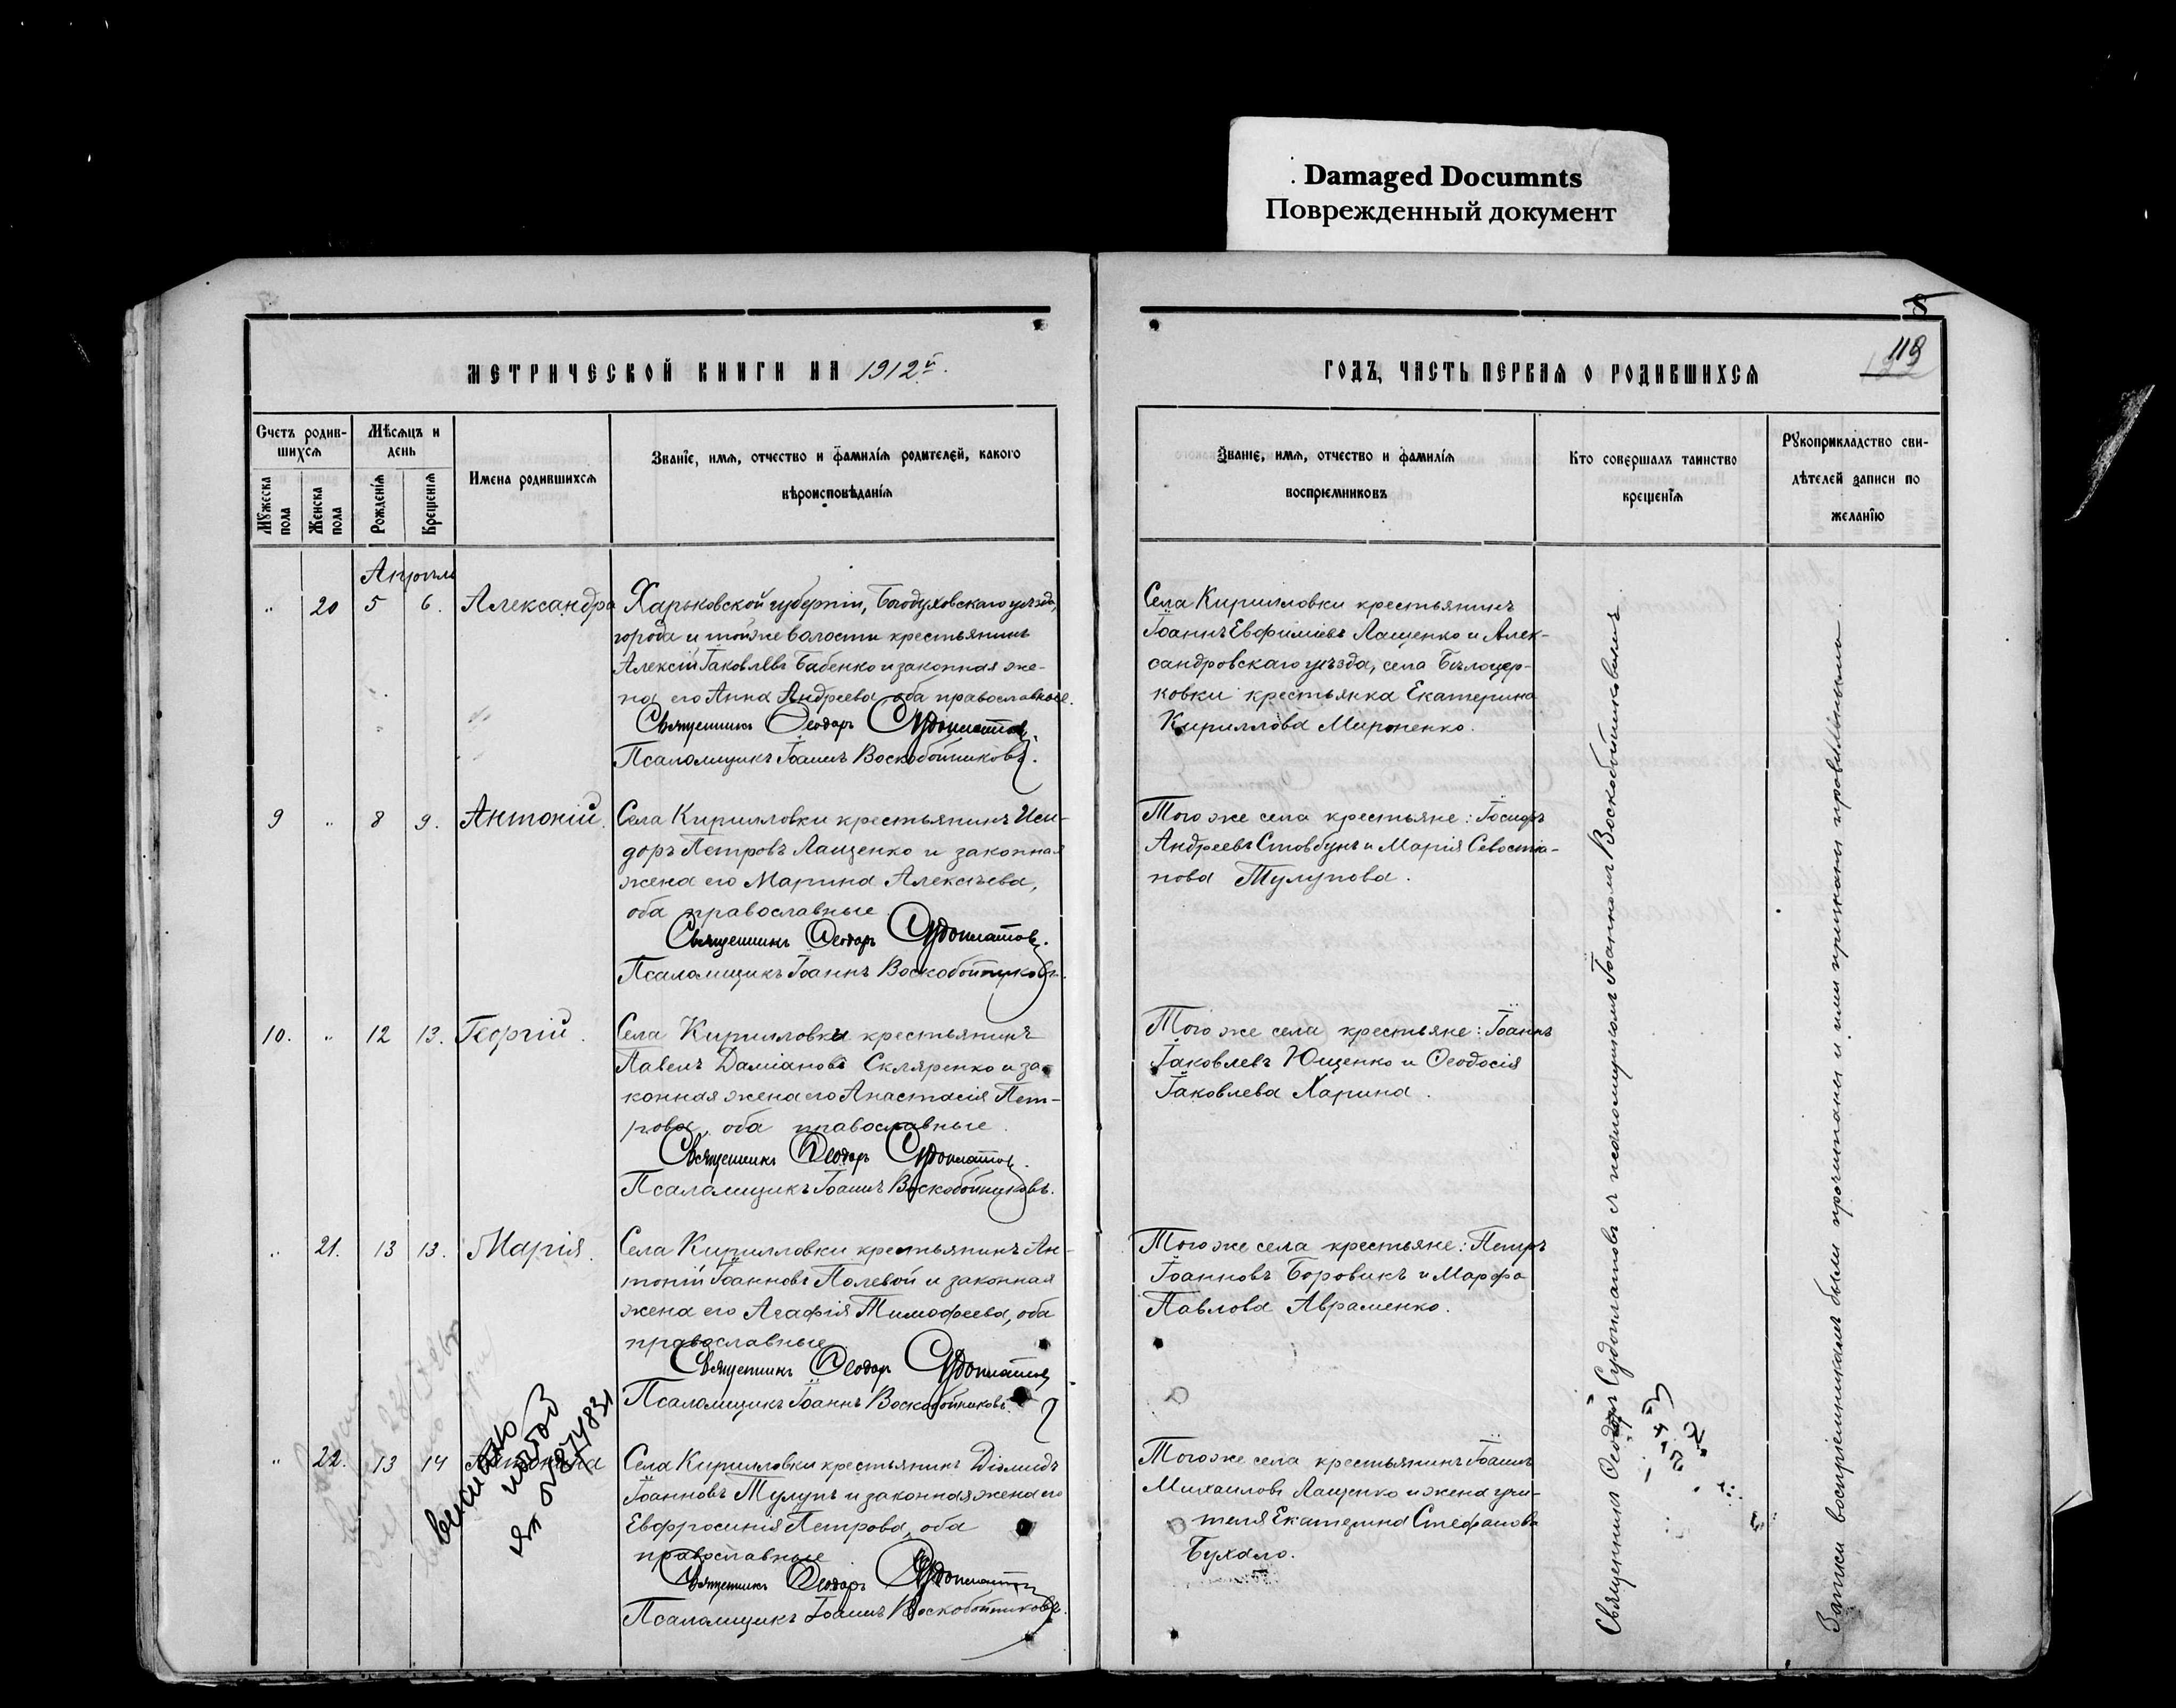 Damaged Documnts
Поврежденный документ
8
МЕТРИЧЕСКОЙ КНИГИ НА 1912й.
ГОДЪ, ЧАСТЬ ПЕРВАЯ О РОДИВШИХСЯ
119
Счетъ родив-
шихся
Мѣсяцъ и
день
Мужеска
пола
Женска
пола
Рожденія
Крещенія
Имена родившихся
Званіе, имя, отчество и фамилія родителей, какого
вѣроисповѣданія
Званіе, имя, отчество и фамилія
воспріемниковъ
Кто совершалъ таинство
крещенія
Рукоприкладство сви-
дѣтелей записи по
желанію
Апрѣль
" 20 5 6. Александра
Харьковской губерніи, Богодуховскаго уѣзда,
города и тойже волости крестьянинъ
Алексій Іаковлевъ Бабенко и законная же-
на его Анна Андреева оба православные.
Священникъ Ѳеодоръ Судоплатовъ.
Псаломщикъ Іоаннъ Воскобойниковъ.
Села Кирилловки крестьянинъ
Іоаннъ Евфиміевъ Лащенко и Алек-
сандровскаго уѣзда, села Бѣлоцер-
ковки крестьянка Екатерина
Кириллова Мироненко.
9 " 8 9. Антоній.
Села Кирилловки крестьянинъ Иси-
доръ Петровъ Лащенко и законная
жена его Марина Алексѣева,
оба православные
Священникъ Ѳеодоръ Судоплатовъ.
Псаломщикъ Іоаннъ Воскобойниковъ.
Того же села крестьяне: Іосифъ
Андреевъ Стовбунъ и Марія Севостіа-
нова Тулупова.
10. " 12 13. Георгій.
Села Кирилловки крестьянинъ
Павелъ Даміановъ Скляренко и за-
конная жена его Анастасія Пет-
рова, оба православные.
Священникъ Ѳеодоръ Судоплатовъ.
Псаломщикъ Іоаннъ Воскобойниковъ.
Того же села крестьяне: Іоаннъ
Іаковлевъ Ющенко и Ѳеодосія
Іаковлева Харина.
" 21. 13 13. Марія.
Села Кирилловки крестьянинъ Ан-
тоній Іоанновъ Полевой и законная
жена его Агафія Тимофеева, оба
православные
Священникъ Ѳеодоръ Судоплатовъ
Псаломщикъ Іоаннъ Воскобойниковъ.
Того же села крестьяне: Петръ
Іоанновъ Боровикъ и Марфа
Павлова Авраменко.
" 22. 13 14 Антонина
Села Кирилловки крестьянинъ Діомидъ
Іоанновъ Тулупъ и законная жена его
Евфросинія Петрова, оба
православные
Священникъ Ѳеодоръ Судоплатовъ
Псаломщикъ Іоаннъ Воскобойниковъ.
Того же села крестьянинъ Іоаннъ
Михаиловъ Лащенко и жена учи-
теля Екатерина Стефанова
Бухало.
Священникъ Ѳеодоръ Судоплатовъ съ псаломщикомъ Іоанномъ Воскобойниковымъ.
Записи воспріемникамъ были прочитаны и ими признаны правильными.